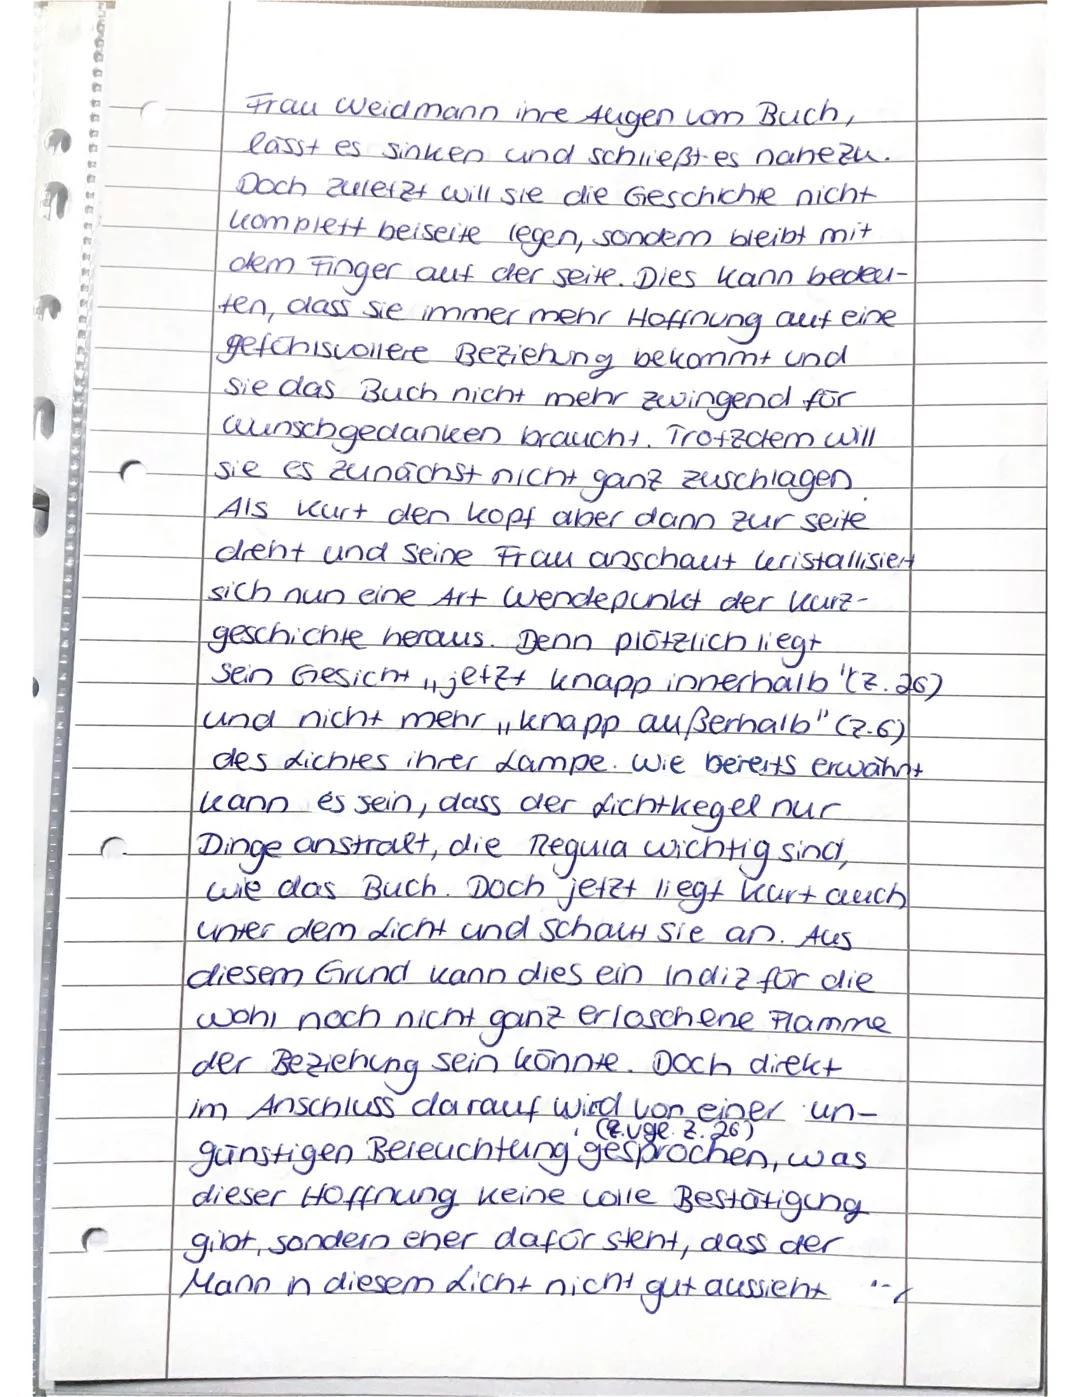 Frau Weidmann ihre Augen vom Buch,
lässt es sinken und schließt es nahezu.
Doch zuletzt will sie die Geschichte nicht
komplett beiseite legen, sondern bleibt mit
dem Finger auf der Seite. Dies kann bedeu-
ten, dass sie immer mehr Hoffnung auf eine
gefühlsvollere Beziehung bekommt und
sie das Buch nicht mehr zwingend für
Wunschgedanken braucht. Trotzdem will
sie es zunächst nicht ganz zuschlagen.
Als Kurt den Kopf aber dann zur Seite
dreht und seine Frau anschaut kristallisiert
sich nun eine Art Wendepunkt der Kurz-
geschichte heraus. Denn plötzlich liegt
sein Gesicht „jetzt knapp innerhalb" (Z. 26)
und nicht mehr „knapp außerhalb" (Z.6)
des Lichtes ihrer Lampe. Wie bereits erwähnt
kann es sein, dass der Lichtkegel nur
Dinge anstralt, die Regula wichtig sind,
wie das Buch. Doch jetzt liegt Kurt auch
unter dem Licht und schaut sie an. Aus
diesem Grund kann dies ein Indiz für die
wohl noch nicht ganz erloschene Flamme
der Beziehung sein könnte. Doch direkt
im Anschluss darauf wird von einer un-
(vgl. Z. 26)
günstigen Beleuchtung gesprochen, was
dieser Hoffnung keine volle Bestätigung
gibt, sondern eher dafür steht, dass der
Mann in diesem Licht nicht gut aussieht